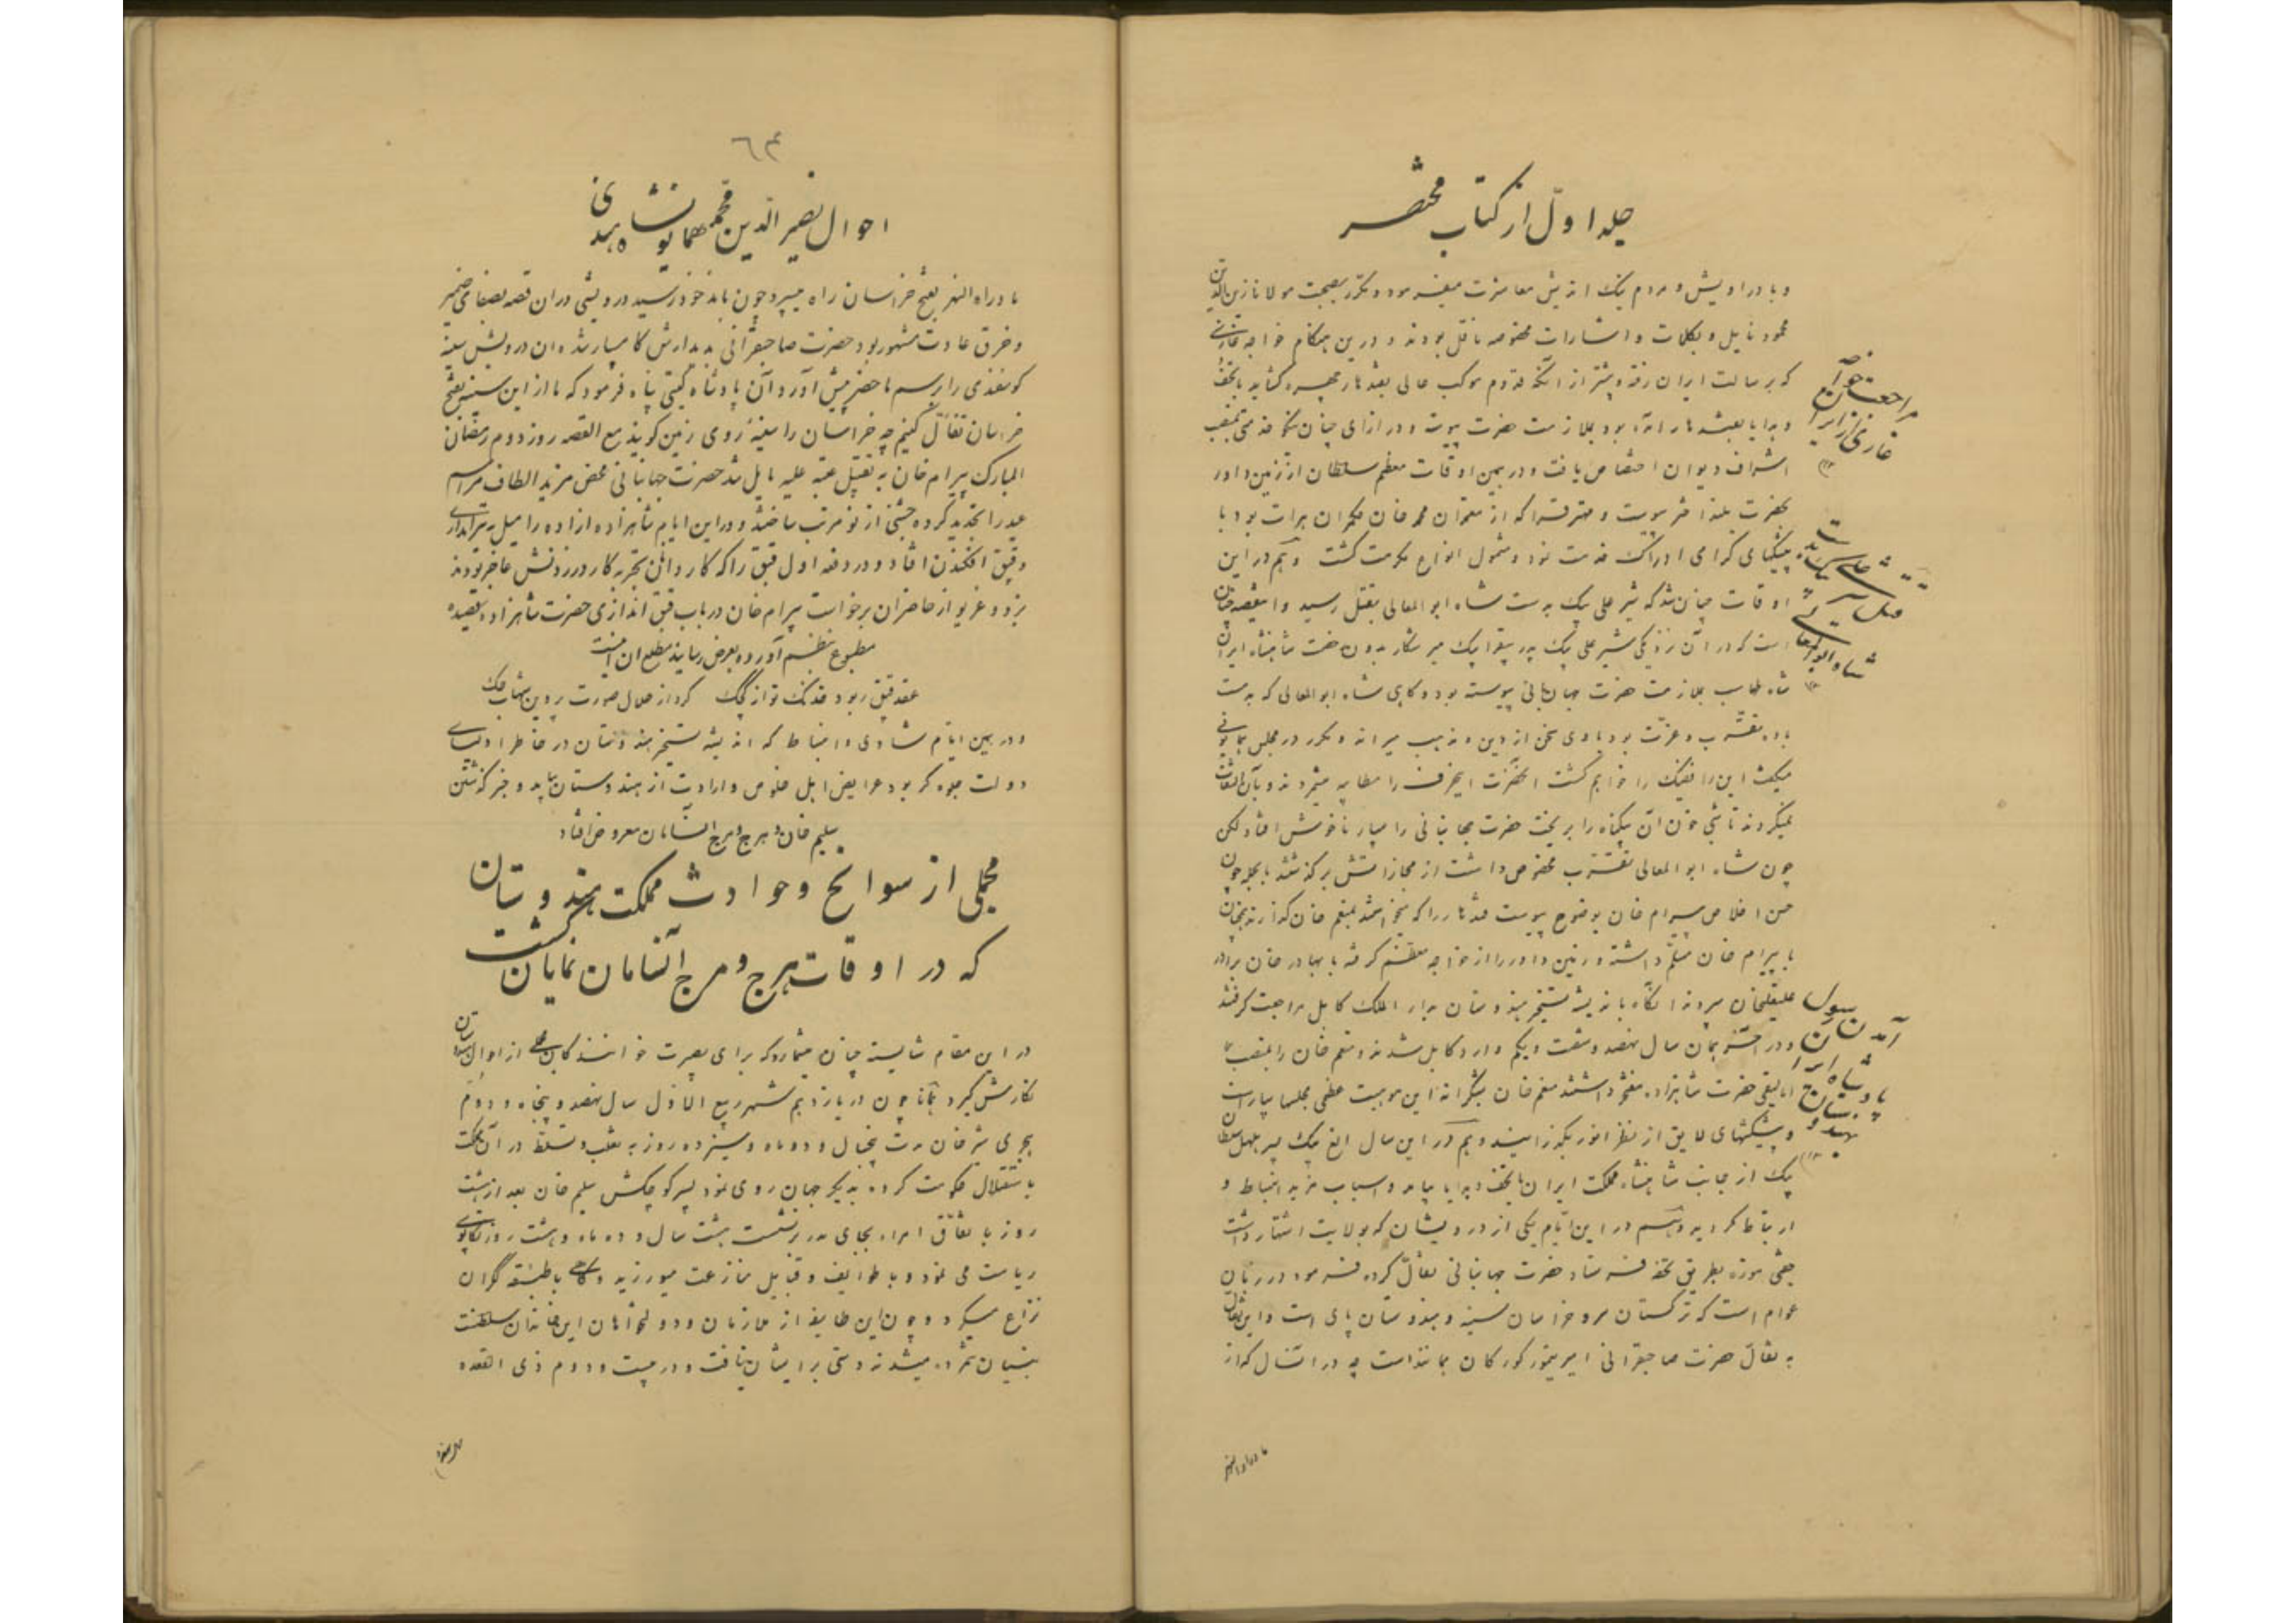 جلد اول از کتاب مختصر
و با دراویش و مردم نیک اندیش معاشرت میفرمود و مکرر بصحبت مولانا زین الدین
محمود نایل و بکلمات و اشارات مخصوصه ناقل بودند و درین هنگام خواجه غازی
که برسالت ایران رفته پیشتر از آنکه قدوم موکب عالی بقندهار چهره کشاید با تحف
و هدایا بقندهار آمده بود بملازمت حضرت پیوست و در ازای چنان نکو خدمتی بمنصب
اشراف دیوان اختصاص یافت و در همین اوقات معظم سلطان از زمین داور
بحضرت بلند اختر پیوست و مهتر قرا که از معتمدان محمد خان حکمران هرات بود با
پیشکشهای گرامی ادراک خدمت نمود و مشمول انواع مکرمت گشت و هم در این
اوقات چنان شد که شیر علی بیک بدست شاه ابوالمعالی بقتل رسید و این قصه چنان
است که در آن نزدیکی شیر علی بیک پدر بیقرا بیک میر شکار بدون رخصت شاهنشاه ایران
شاه طهماسب بملازمت حضرت جهانبانی پیوسته بود و گاهی شاه ابوالمعالی که بدست
باده تقرب و عزت بود با وی سخن از دین و مذهب میراند و مکرر در مجلس همایونی
میگفت این رافضیک را خواهم کشت آنحضرت این حرف را مطایبه میشمردند و بآن التفات
نمیکردند تا شبی خون آن بیگناه را بریخت حضرت جهانبانی را بسیار ناخوش افتاد لکن
چون شاه ابوالمعالی تقرب مخصوص داشت از مجازاتش برگذشتند بالجمله چون
حسن اخلاص بیرام خان بوضوح پیوست قندهار را که میخواستند بمنعم خان گذارند همچنان
با بیرام خان مسلم داشته و زمین داور را از خواجه معظم گرفته با بهادر خان برادر
علیقلیخان سپردند آنگاه باندیشه تسخیر هندوستان بدار الملک کابل مراجعت گرفتند
و در آخر همان سال نهصد و شصت و یکم وارد کابل شدند و منعم خان را بمنصب
اتالیقی حضرت شاهزاده مفتخر داشتند منعم خان بشکرانه این موهبت عظمی مجلسها بیاراست
و پیشکشهای لایق از نظر انور بگذرانیدند و هم در این سال الغ بیک پسر سلطان
بیک از جانب شاهنشاه مملکت ایران با تحف و هدایا بیامد و اسباب مزید انبساط و
ارتباط گردید و هم در این ایام یکی از درویشان که بولایت اشتهار داشت
جفتی موزه بطریق تحفه فرستاد حضرت جهانبانی تفأل کرده فرمود در زبان
عوام است که ترکستان سر و خراسان سینه و هندوستان پای است و این تفأل
به تفأل حضرت صاحبقرانی امیر تیمور گورکان همانند است چه در آنسال که از
مراجعت خواجه غازی از ایران
قتل شیر علی بیک بدست شاه ابوالمعالی
آمدن رسول پادشاه ایران بهندوستان
ماوراءالنهر
٦٣
احوال نصیر الدین محمد همایون شاه ثانی
ماوراء النهر بفتح خراسان راه میسپرد چون باندخود رسید درویشی در آن قصبه بصفای ضمیر
و خرق عادت مشهور بود حضرت صاحبقرانی بدیدارش کام سپار شد و آن درویش سینه
گوسفندی را برسم ما حضر پیش آورد آن پادشاه گیتی پناه فرمود که ما از این سینه بفتح
خراسان تفأل کنیم چه خراسان را سینه روی زمین گویند مع القصه روز دوم رمضان
المبارک بیرام خان به تقبیل عتبه علیه نایل شد حضرت جهانبانی محض مزید الطاف مراسم
عید را تجدید کرده جشنی از نو مرتب ساختند و در این ایام شاهزاده آزاده را میل به تیراندازی
و قبق افکندن افتاد و در دفعه اول قبق را که کاردانان تجربه کار در زدنش عاجز بودند
بزد و غریو از حاضران برخواست بیرام خان در باب قبق اندازی حضرت شاهزاده قصیده
مطبوع بنظم آورده بعرض رسانید مطلع آن اینست
عقد قبق ربود خدنک تو از کجک کرد از هلال صورت پروین شهاب حک
و در همین ایام شادی و انبساط که اندیشه تسخیر هندوستان در خاطر اولیای
دولت جلوه گر بود عرایض اهل خلوص و ارادت از هندوستان بیامد و خبر گذشتن
سلیم خان و هرج و مرج آنسامان معروض افتاد
مجملی از سوانح و حوادث مملکت هندوستان
که در اوقات هرج و مرج آنسامان نمایان گشت
در این مقام شایسته چنان میشمارد که برای بصیرت خوانندگان مجملی از احوال هندوستان
نگارش گیرد همانا چون در یازدهم شهر ربیع الاول سال نهصد و پنجاه و دوم
هجری شیر خان مدت پنجسال و دو ماه و سیزده روز به تغلب و تسلط در آن مملکت
باستقلال حکومت کرده بدیگر جهان روی نمود پسر کوچکش سلیم خان بعد از هشت
روز باتفاق امراء بجای پدر برنشست هشت سال و دو ماه و هشت روز
ریاست می نمود و با طوایف و قبایل منازعت میورزید و گاهی با طبقه گکران
نزاع میکرد و چون این طایفه از ملازمان و دولتخواهان این خاندان سلطنت
بنیان شمرده میشدند دستی بر ایشان نیافت و در بیست و دوم ذی القعده